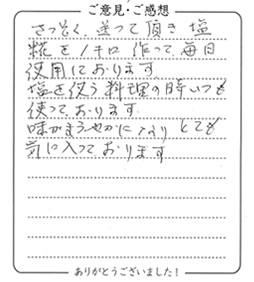 ご意見・ご感想
さっそく、送って頂き 塩
糀を1キロ 作って、毎日
使用しております。
塩を使う料理の時いつも
使っております。
味がまろやかになり とても
気に入っております
ありがとうございました!